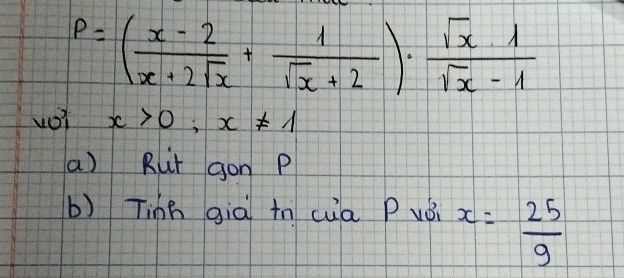 P = ( (x - 2)/(x + 2√x) + 1/(√x + 2) ) . (√x . 1)/(√x - 1)
với x > 0 ; x ≠ 1
a) Rút gọn P
b) Tính giá trị của P với x = 25/9